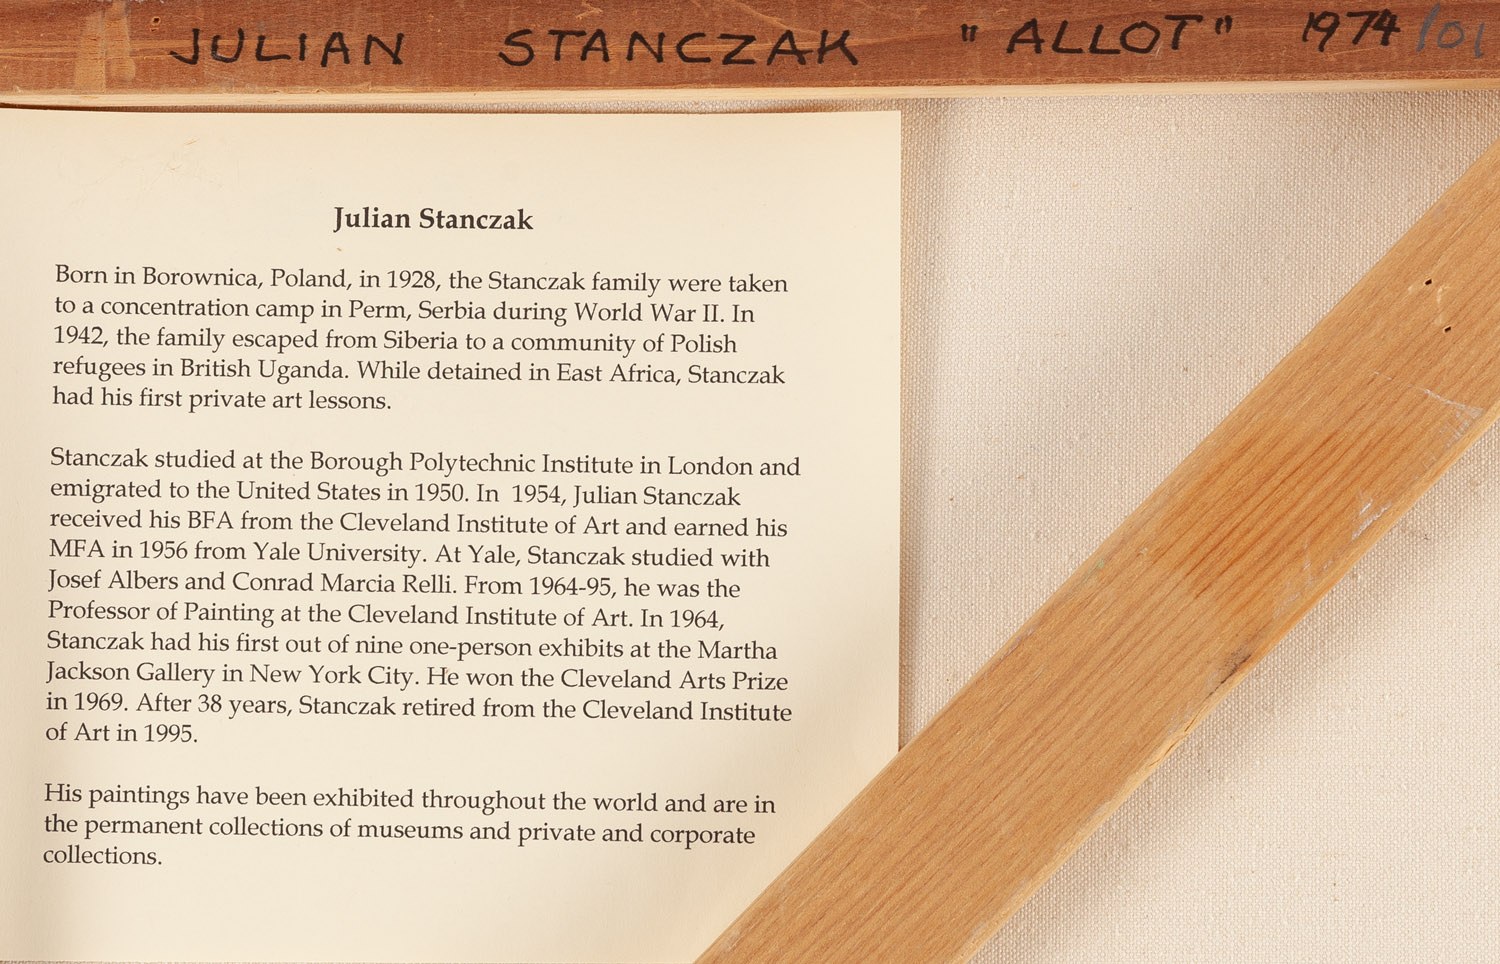 JULIAN STANCZAK "ALLOT" 1974/01
Julian Stanczak
Born in Borownica, Poland, in 1928, the Stanczak family were taken
to a concentration camp in Perm, Serbia during World War II. In
1942, the family escaped from Siberia to a community of Polish
refugees in British Uganda. While detained in East Africa, Stanczak
had his first private art lessons.
Stanczak studied at the Borough Polytechnic Institute in London and
emigrated to the United States in 1950. In  1954, Julian Stanczak
received his BFA from the Cleveland Institute of Art and earned his
MFA in 1956 from Yale University. At Yale, Stanczak studied with
Josef Albers and Conrad Marcia Relli. From 1964-95, he was the
Professor of Painting at the Cleveland Institute of Art. In 1964,
Stanczak had his first out of nine one-person exhibits at the Martha
Jackson Gallery in New York City. He won the Cleveland Arts Prize
in 1969. After 38 years, Stanczak retired from the Cleveland Institute
of Art in 1995.
His paintings have been exhibited throughout the world and are in
the permanent collections of museums and private and corporate
collections.